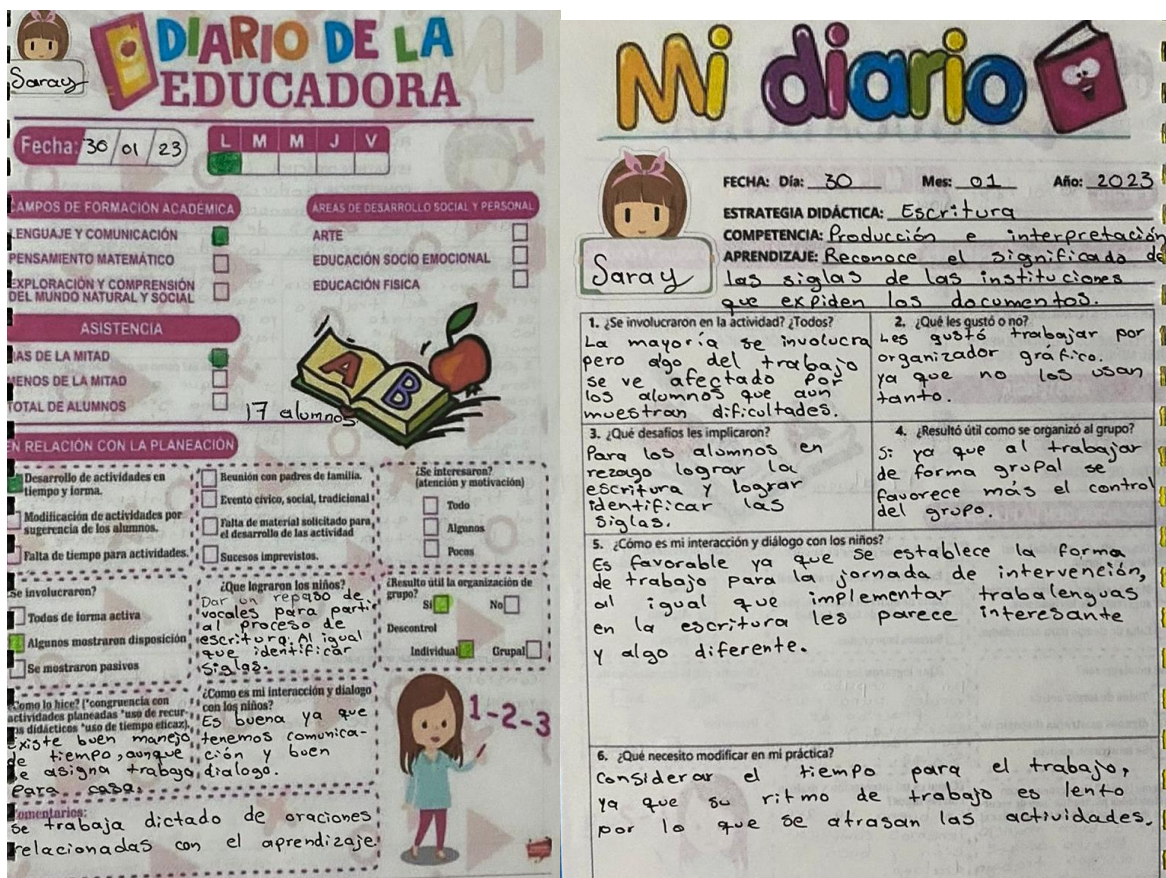 Saray
DIARIO DE LA
EDUCADORA
Fecha: 30 / 01 / 23
L M M J V
CAMPOS DE FORMACIÓN ACADEMICA
LENGUAJE Y COMUNICACIÓN
PENSAMIENTO MATEMÁTICO
EXPLORACIÓN Y COMPRENSIÓN
DEL MUNDO NATURAL Y SOCIAL
AREAS DE DESARROLLO SOCIAL Y PERSONAL
ARTE
EDUCACIÓN SOCIO EMOCIONAL
EDUCACIÓN FISICA
ASISTENCIA
AS DE LA MITAD
MENOS DE LA MITAD
TOTAL DE ALUMNOS
17 alumnos
A B
EN RELACIÓN CON LA PLANEACIÓN
Desarrollo de actividades en
tiempo y forma.
Modificación de actividades por
sugerencia de los alumnos.
Falta de tiempo para actividades.
Reunión con padres de familia.
Evento cívico, social, tradicional
Falta de material solicitado para
el desarrollo de las actividad
Sucesos imprevistos.
¿Se interesaron?
(atención y motivación)
Todo
Algunos
Pocos
Se involucraron?
Todos de forma activa
Algunos mostraron disposición
Se mostraron pasivos
¿Que lograron los niños?
Dar un repaso de
vocales para partir
al proceso de
escritura. Al igual
que identificar
siglas.
¿Resulto útil la organización de
grupo?
Si No
Descontrol
Individual Grupal
Como lo hice? (*congruencia con
actividades planeadas *uso de recur-
os didácticos *uso de tiempo eficaz).
existe buen manejo
de tiempo, aunque
se asigna trabajo
para casa.
¿Como es mi interacción y dialogo
con los niños?
Es buena ya que
tenemos comunica-
ción y buen
dialogo.
1-2-3
Comentarios:
se trabaja dictado de oraciones
relacionadas con el aprendizaje.
Mi diario
Saray
FECHA: Día: 30 Mes: 01 Año: 2023
ESTRATEGIA DIDÁCTICA: Escritura
COMPETENCIA: Producción e interpretación
APRENDIZAJE: Reconoce el significado de
las siglas de las instituciones
que expiden los documentos.
1. ¿Se involucraron en la actividad? ¿Todos?
La mayoría se involucra
pero algo del trabajo
se ve afectado por
los alumnos que aún
muestran dificultades.
2. ¿Qué les gustó o no?
Les gustó trabajar por
organizador gráfico.
ya que no los usan
tanto.
3. ¿Qué desafíos les implicaron?
Para los alumnos en
rezago lograr la
escritura y lograr
identificar las
siglas.
4. ¿Resultó útil como se organizó al grupo?
Si ya que al trabajar
de forma grupal se
favorece más el control
del grupo.
5. ¿Cómo es mi interacción y diálogo con los niños?
Es favorable ya que se establece la forma
de trabajo para la jornada de intervención,
al igual que implementar trabalenguas
en la escritura les parece interesante
y algo diferente.
6. ¿Qué necesito modificar en mi práctica?
Considerar el tiempo para el trabajo,
ya que su ritmo de trabajo es lento
por lo que se atrasan las actividades.